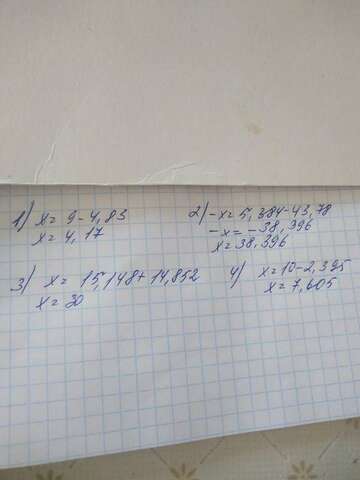 1) x = 9 - 4,83
x = 4,17
2) -x = 5,384 - 43,78
-x = -38,396
x = 38,396
3) x = 15,148 + 14,852
x = 30
4) x = 10 - 2,395
x = 7,605